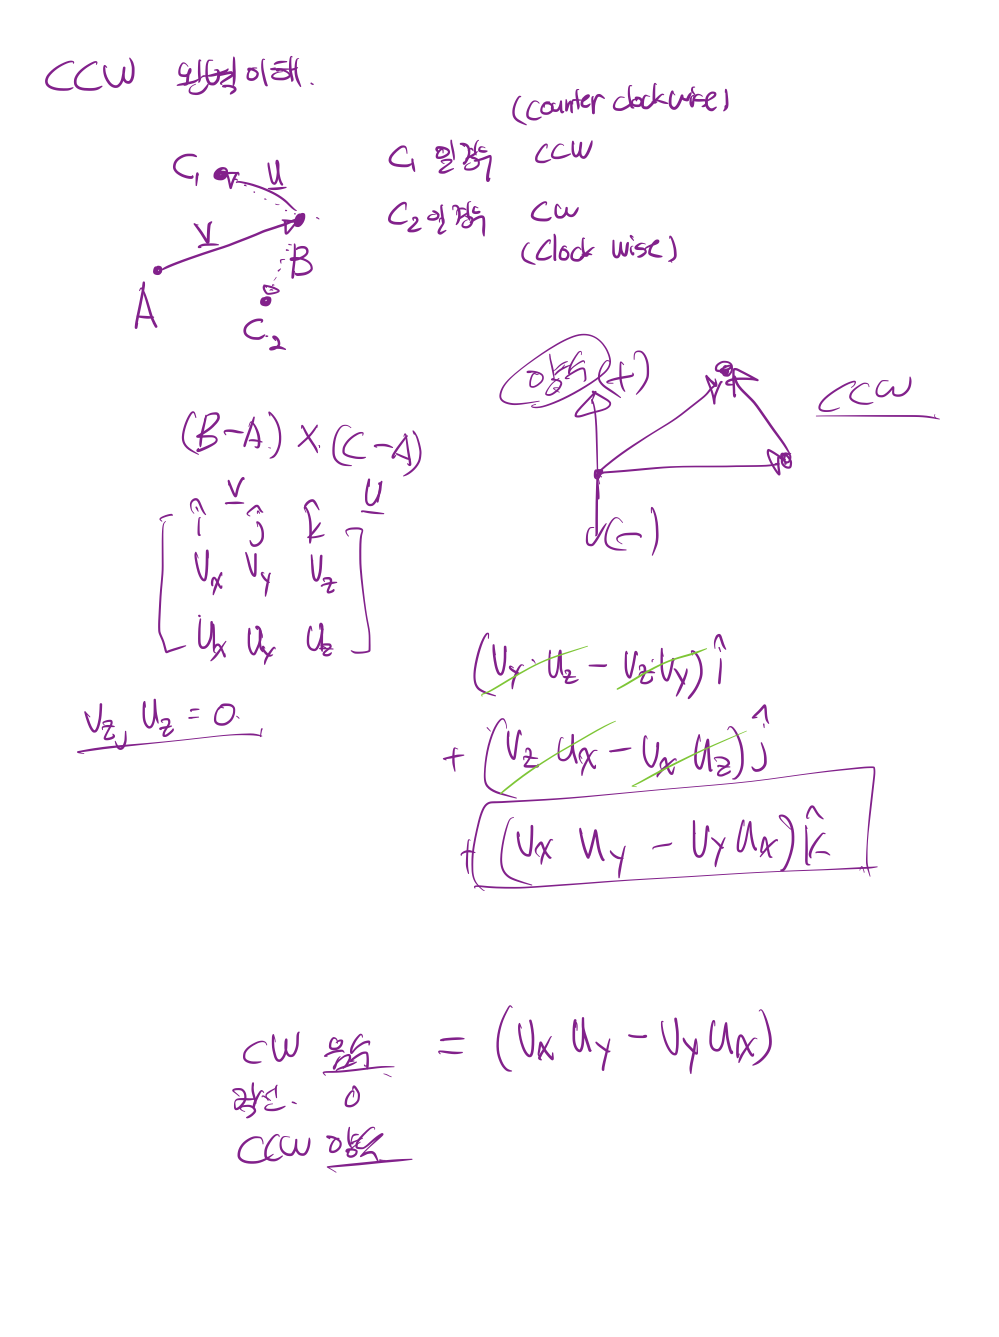 CCW 완벽이해.
(counter clockwise)
C₁ 일경우 CCW
C₂ 일경우 CW
(Clock wise)
C₁ u
V
B
A
C₂
양수(+)
CCW
(-)
(B-A) × (C-A)
v u
î ĵ k̂
Vx Vy Vz
Ux Uy Uz
Vz, Uz = 0.
(Vy·Uz - Vz·Uy) î
+ (Vz Ux - Vx Uz) ĵ
+ (Vx Uy - Vy Ux) k̂
CW 음수 = (Vx Uy - Vy Ux)
평행. 0
CCW 양수